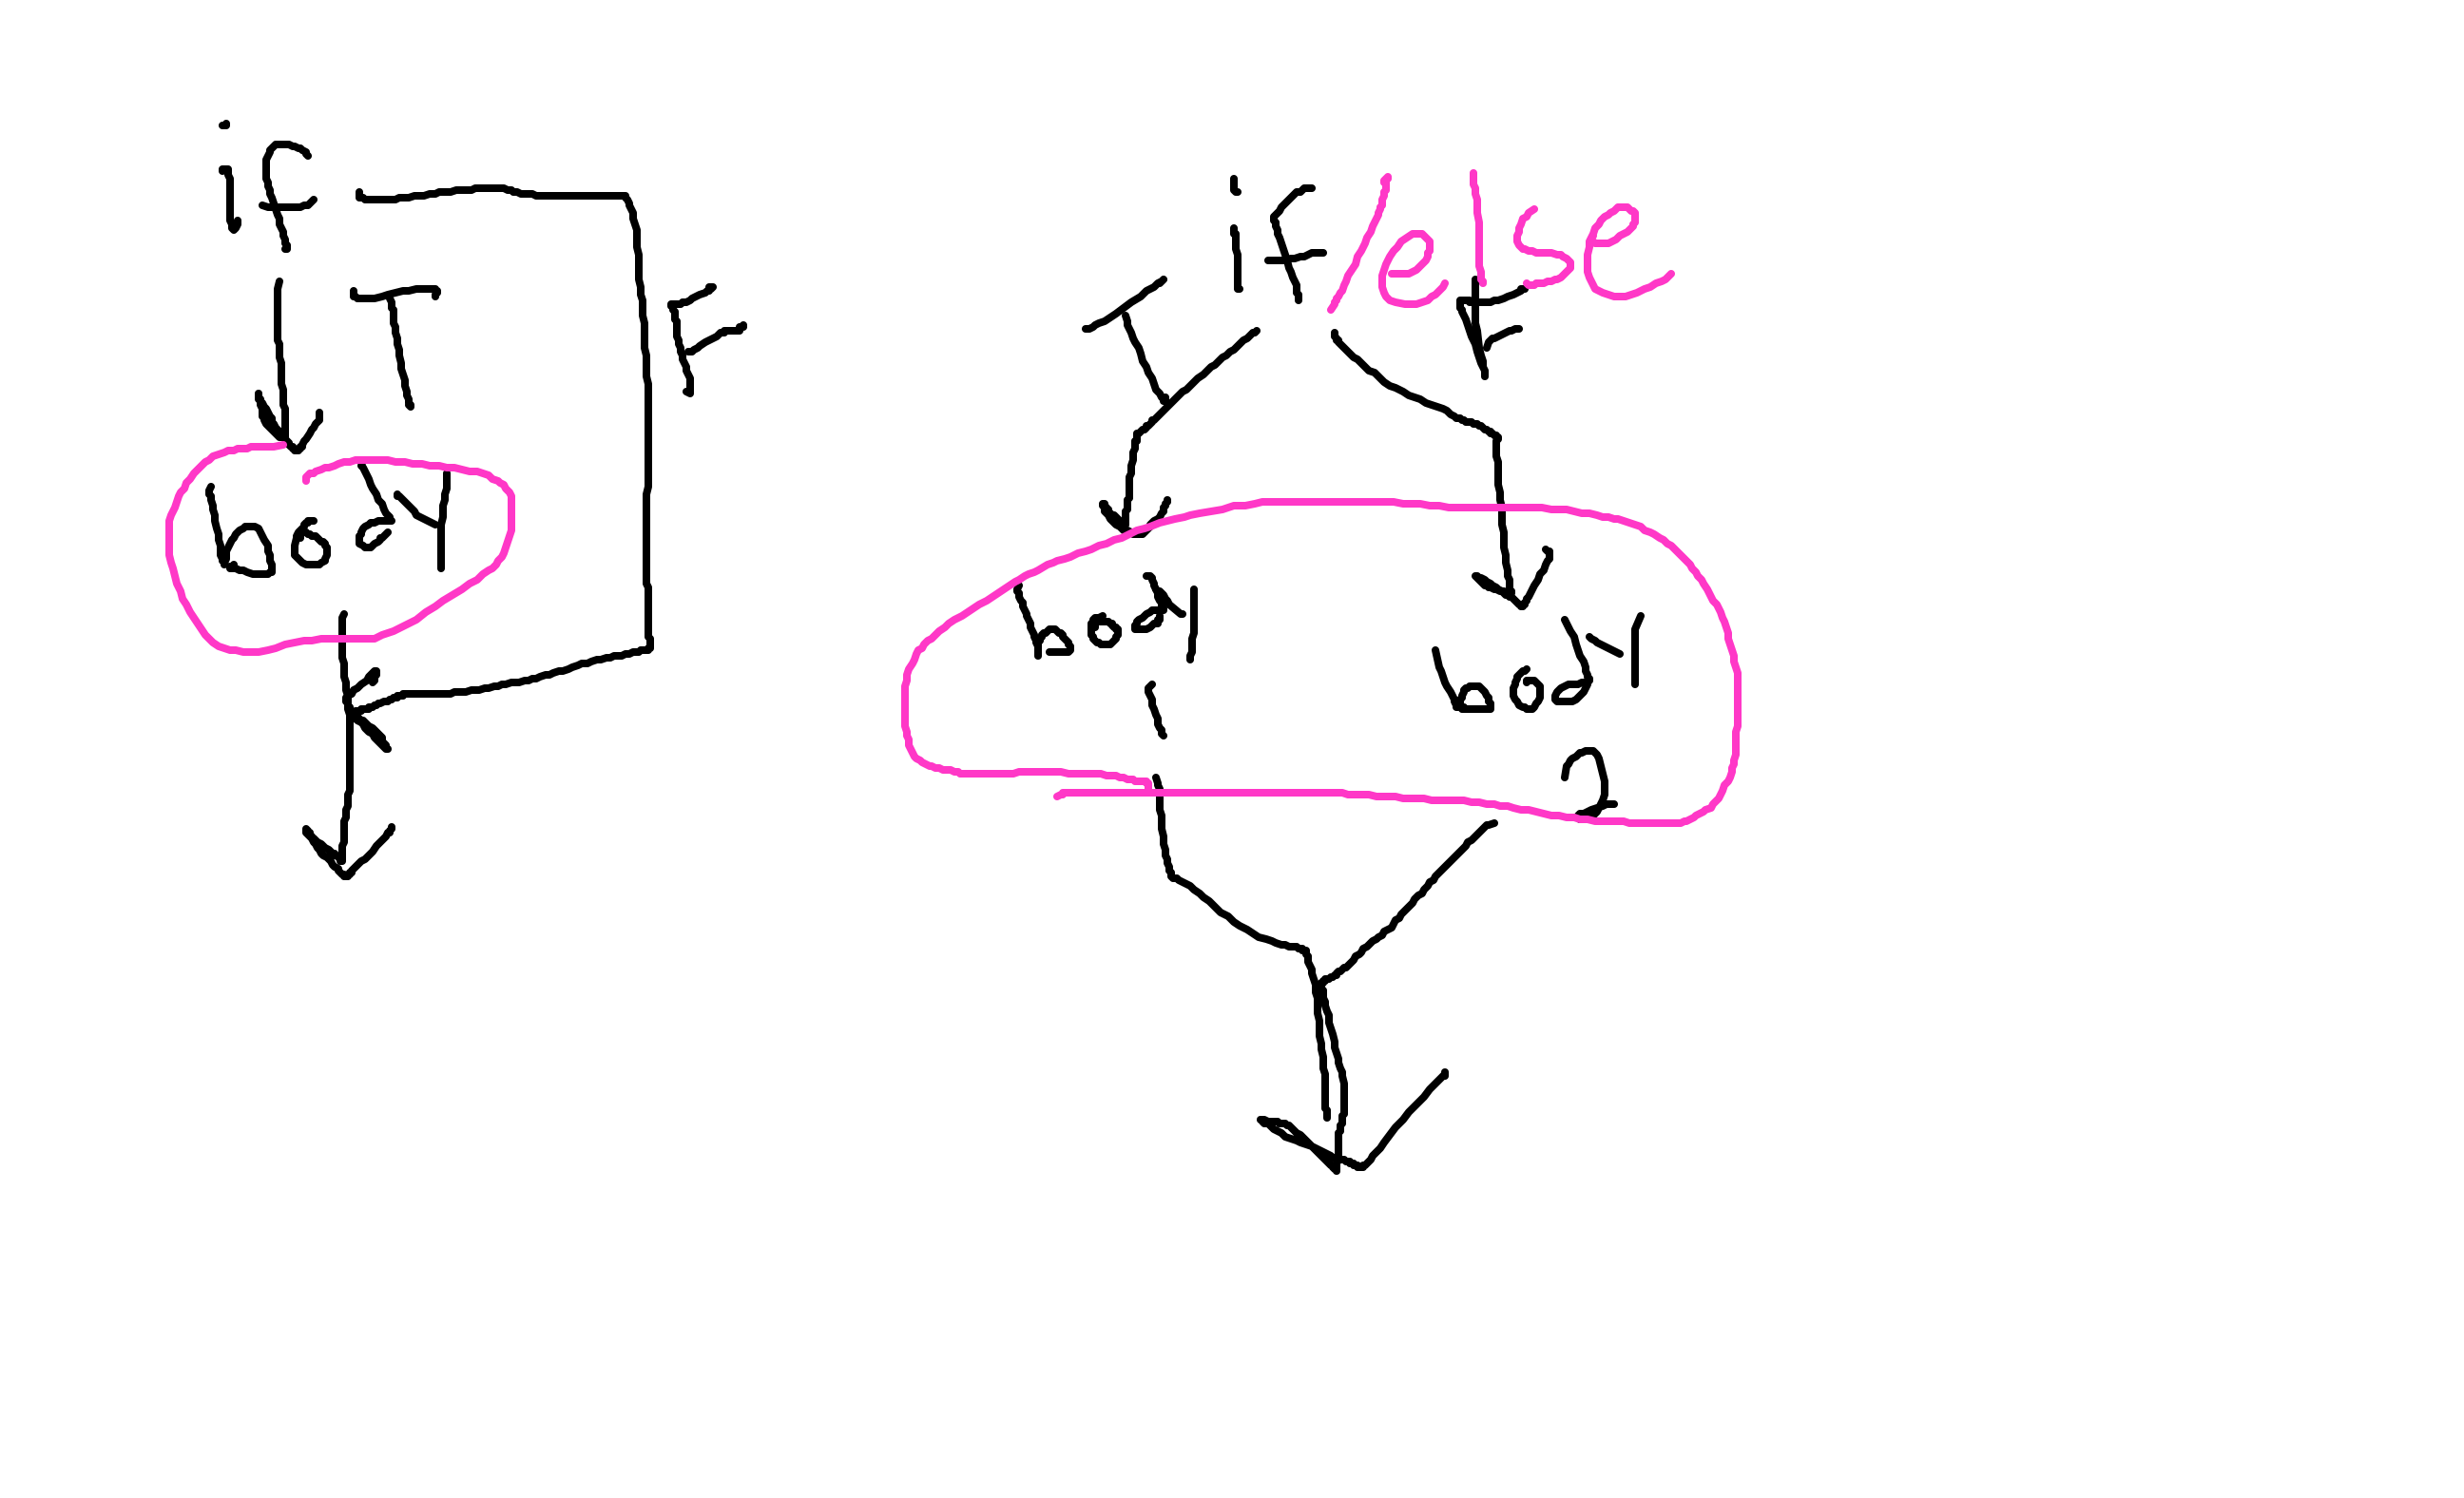 if
T
F
body
if/else
T
F
body
body
2